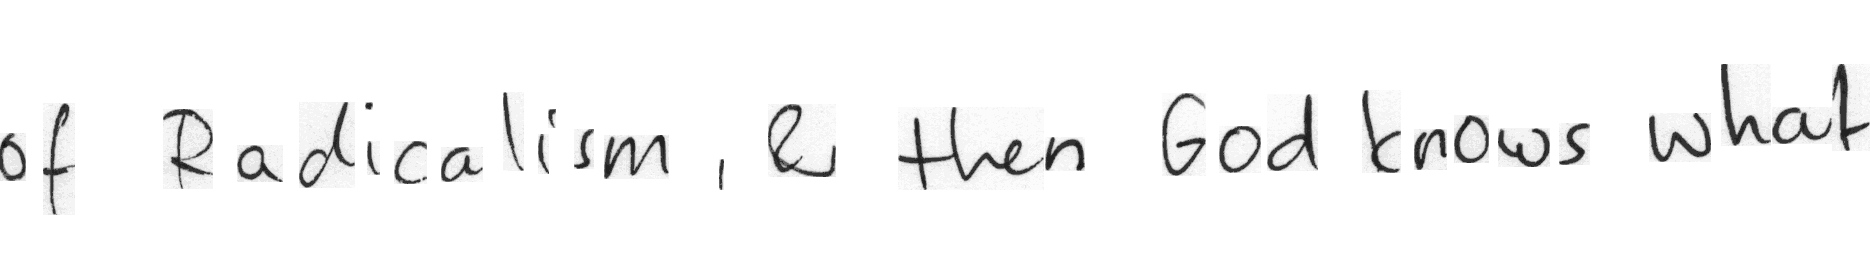 of Radicalism, & then God knows what